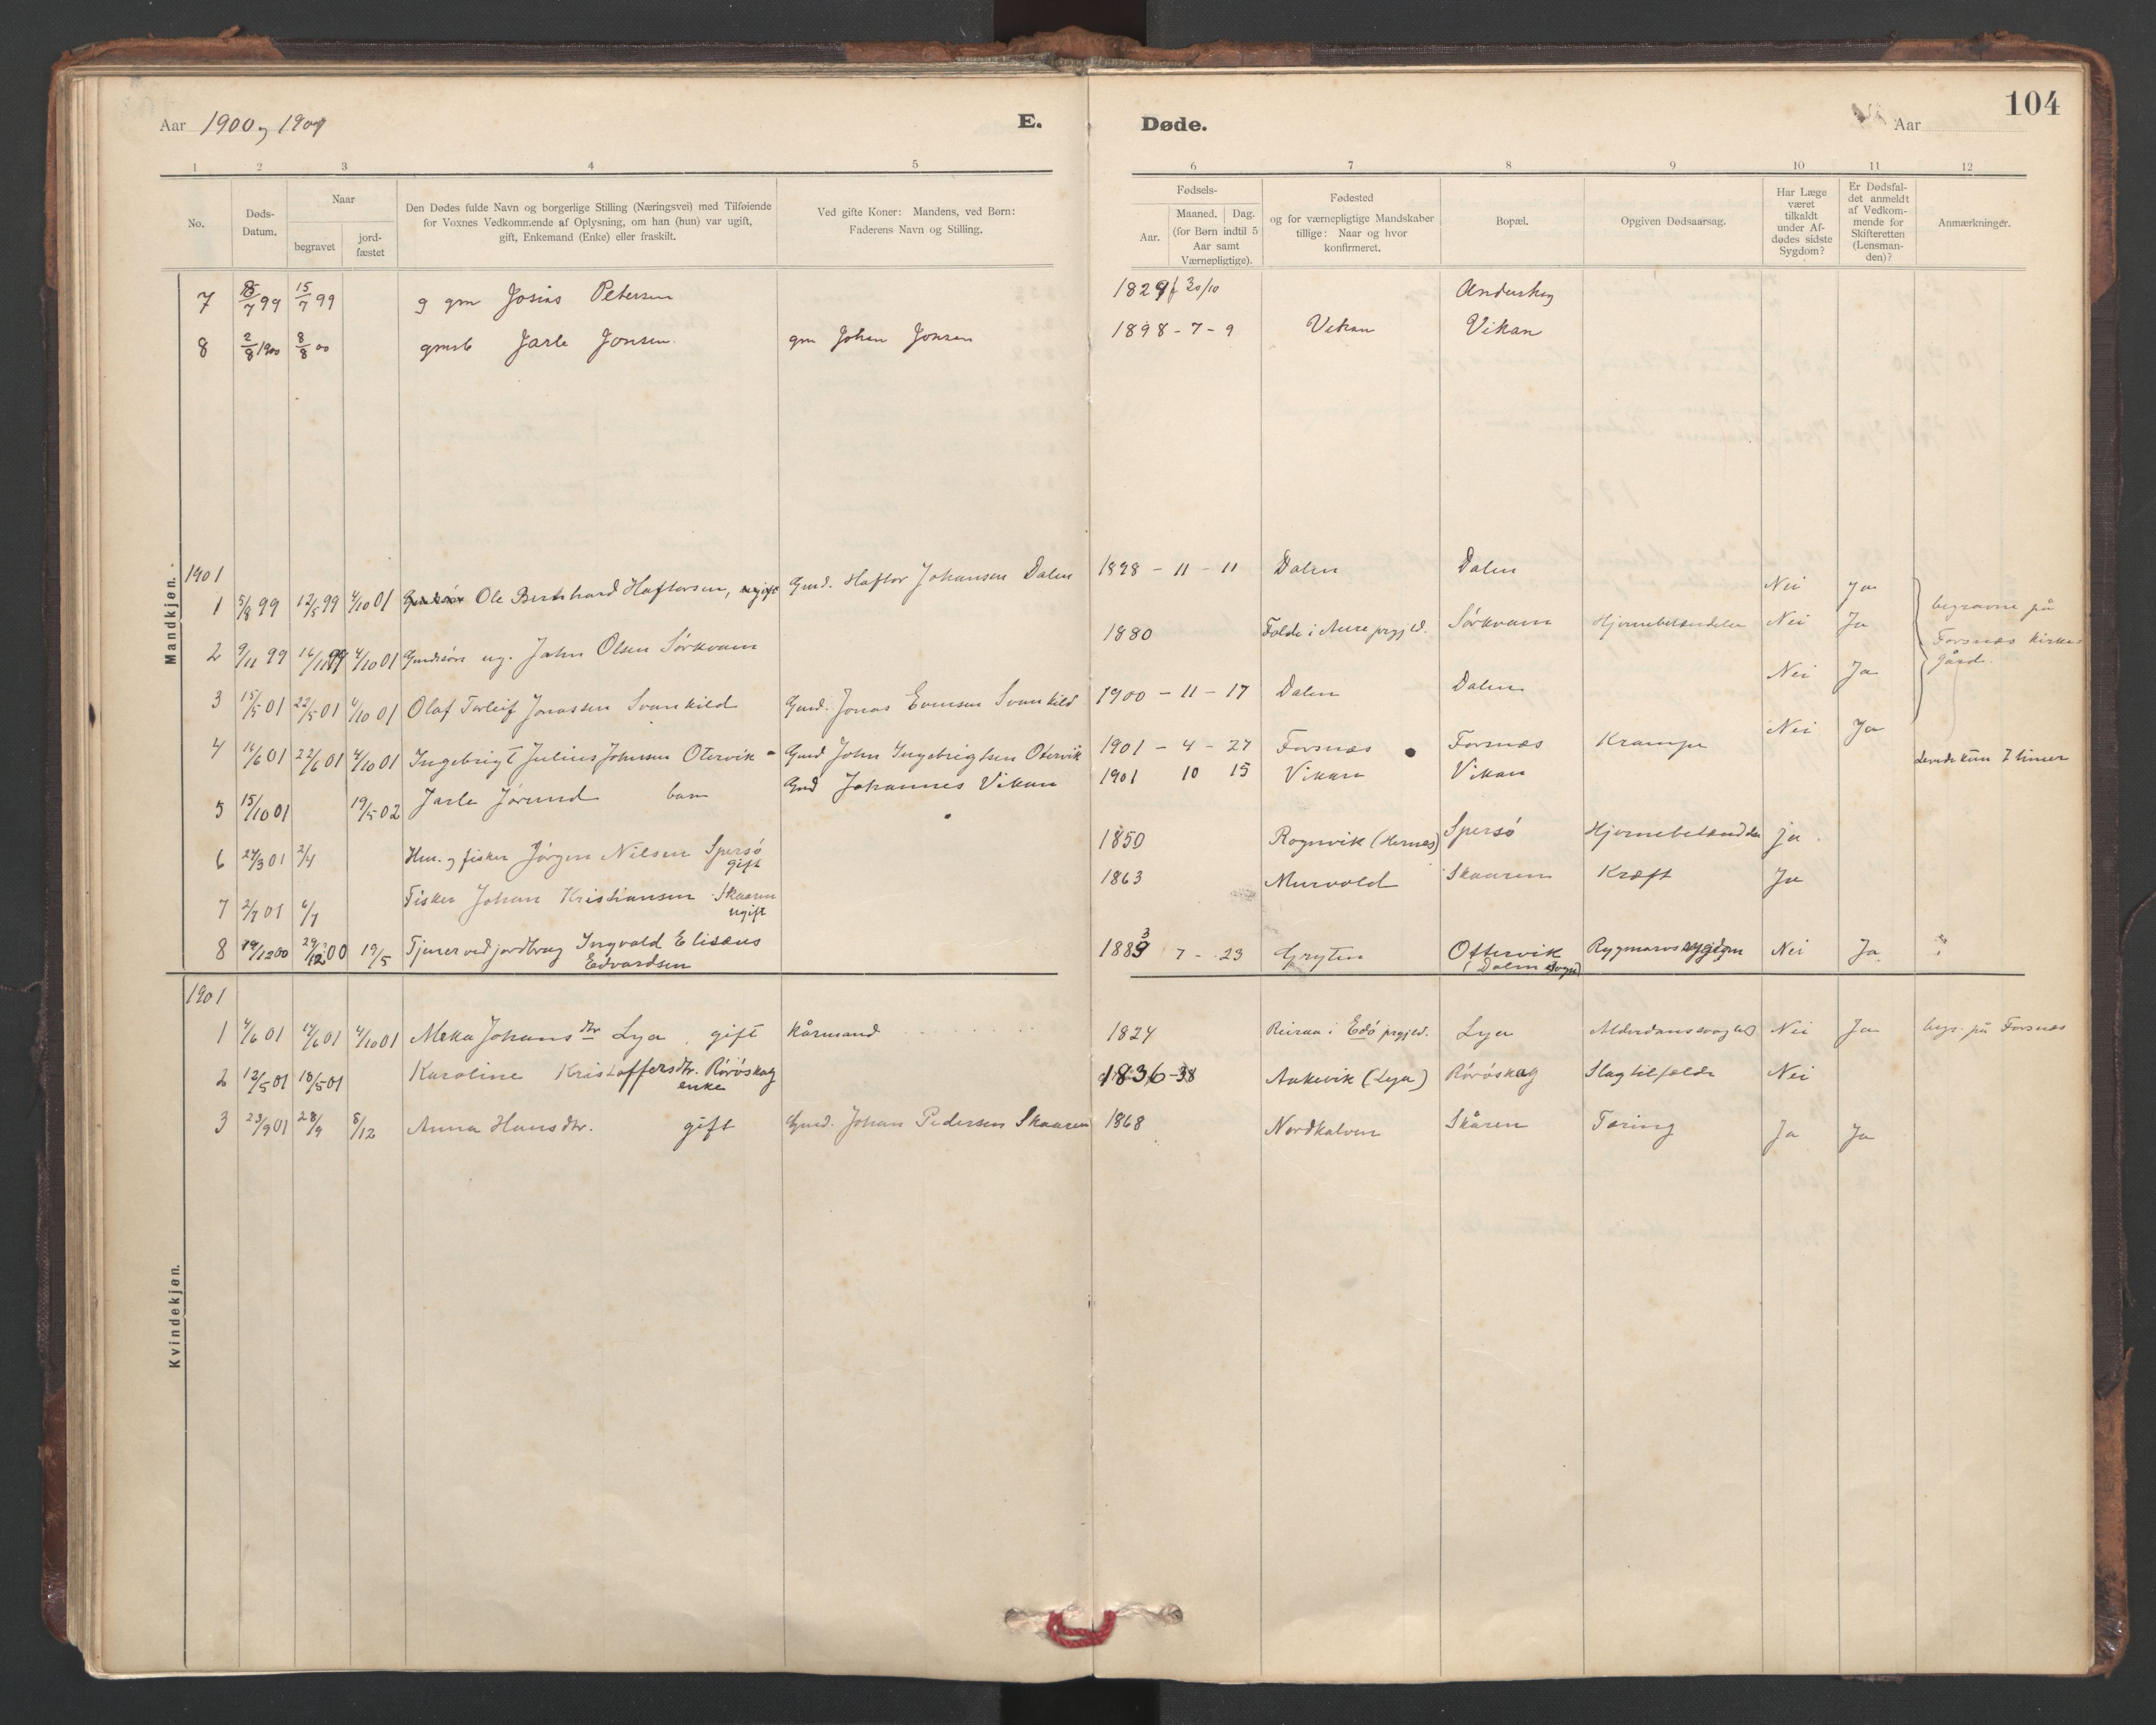 Aar 1900 og 1901
E.
Døde.
Aar
104
1 2 3 4 5 6 7 8 9 10 11 12
No.
Døds-Datum.
Naar
begravet
jord-fæstet
Den Dødes fulde Navn og borgerlige Stilling (Næringsvei) med Tilføiende
for Voxnes Vedkommende af Oplysning, om han (hun) var ugift,
gift, Enkemand (Enke) eller fraskilt.
Ved gifte Koner: Mandens, ved Børn:
Faderens Navn og Stilling.
Fødsels-
Aar.
Maaned. Dag.
(for Børn indtil 5
Aar samt
Værnepligtige).
Fødested
og for værnepligtige Mandskaber
tillige: Naar og hvor
konfirmeret.
Bopæl.
Opgiven Dødsaarsag.
Har Læge
været
tilkaldt
under Af-
dødes sidste
Sygdom?
Er Dødsfal-
det anmeldt
af Vedkom-
mende for
Skifteretten
(Lensman-
den)?
Anmærkninger.
Mandkjøn.
7 8/7 99 15/7 99 g gm Josias Petersen 1829 30/10
8 2/8 1900 8/8 00 gmsb Jarle Jonsen. gm Johan Jonsen 1898-7-9 Vikan Vikan
1901
1 5/8 99 12/5 99 4/10 01 Ole Bernhard Haftorsen, Gmd. Haftor Johansen Dalen 1898 - 11 - 11 Dalen Dalen Nei Ja
2 9/11 99 16/11 99 4/10 01 Gmdssøn ug. John Olsen Sørkvam 1880 Folde i Aure prgjld. Sørkvam Hjernebetændelse Nei Ja
begravne på
Forsnæs kirke-
gård.
3 15/5 01 22/5 01 4/10 01 Olaf Torleif Jonassen Svankild Gmd. Jonas Evensen Svankild 1900 - 11 - 17 Dalen Dalen Nei Ja
4 16/6 01 22/6 01 4/10 01 Ingebrigt Julius Johnsen Otervik - Gmd John Ingebrigtsen Otervik 1901 - 4 - 27 Forsnæs Forsnæs Krampe Nei Ja
5 15/10 01 19/5 02 Jarle Jørund barn Gmd Johannes Vikan 1901 10 15 Vikan Vikan Levede kun 7 timer
6 24/3 01 2/4 Hm. og fisker Jørgen Nilsen Spersø
gift
1850 Rognvik (Hernes) Spersø Hjernebetændelse Ja
7 2/7 01 6/7 Fisker Johan Kristiansen Skaaren
ugift
1863 Murvold Skaaren Kræft Ja
8 19/12 00 29/12 00 19/5 Tjener ved jordbrug Ingvald Elisæus
Edvardsen
1883 7 - 23 Gryten Ottervik
(Dalen sogn)
Rygmarvssygdom Nei Ja
Kvindekjøn.
1901
1 4/6 01 14/6 01 4/10 01 Meka Johansdtr Lya, gift Kårmand 1824 Reiraa i Edø prgjld. Lya Nei Ja begr. på Forsnæs
2 12/5 01 18/5 01 Karoline Kristoffersdtr. Röröskag
enke
1836-38 Aukevik (Lya) Röröskag Slagtilfælde Nei
3 23/9 01 28/9 8/12 Anna Hansdtr. gift Gmd. Johan Pedersen Skaaren 1868 Nordkalven Skåren Tæring Ja Ja